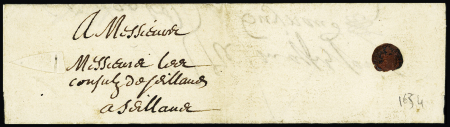 A Messieurs
Messieurs les
consulz de Seillans
a Seillans
1654